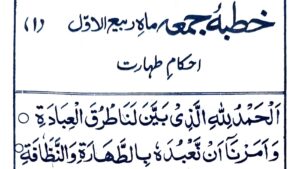 خطبۂ جمعہ ماہِ ربیع الاوّل (۱)
احکامِ طہارت
اَلْحَمْدُ لِلّٰهِ الَّذِیْ بَیَّنَ لَنَا طُرُقَ الْعِبَادَةِ ○
وَاَمَرَنَآ اَنْ نَّعْبُدَهٗ بِالطَّهَارَةِ وَالنَّظَافَةِ ○